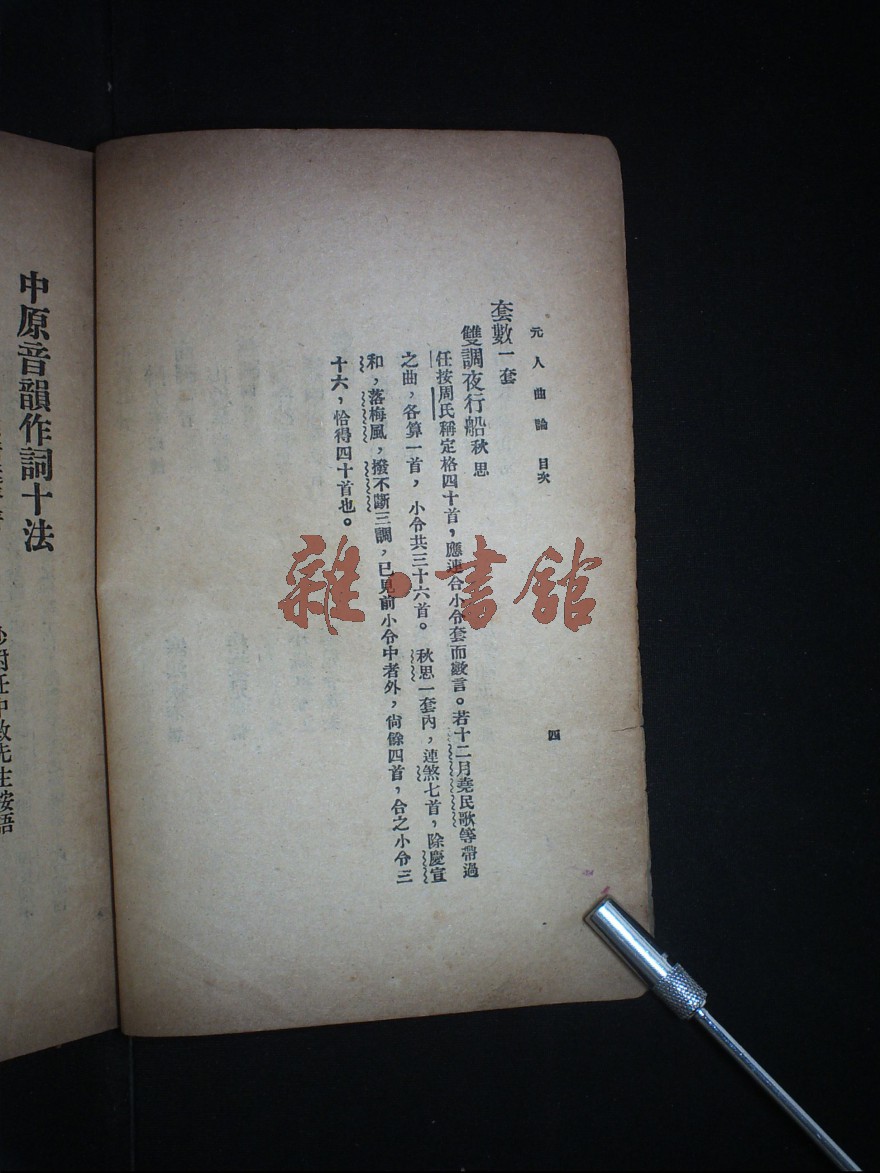 元人曲論 目次 四
套數一套
雙調夜行船秋思
任按周氏稱定格四十首，應連合小令套而數言。若十二月堯民歌等帶過
之曲，各算一首，小令共三十六首。秋思一套內，連煞七首，除慶宣
和，落梅風，撥不斷三調，已見前小令中者外，尙餘四首，合之小令三
十六，恰得四十首也。
雜·書館
中原音韻作詞十法
附任中敏先生按語